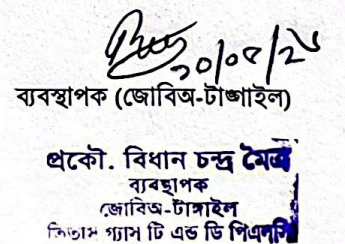 ২০/০৫/২৫
ব্যবস্থাপক (জোবিঅ-টাঙ্গাইল)
প্রকৌ. বিধান চন্দ্র মৈত্র
ব্যবস্থাপক
জোবিঅ-টাঙ্গাইল
তিতাস গ্যাস টি এন্ড ডি পিএলসি